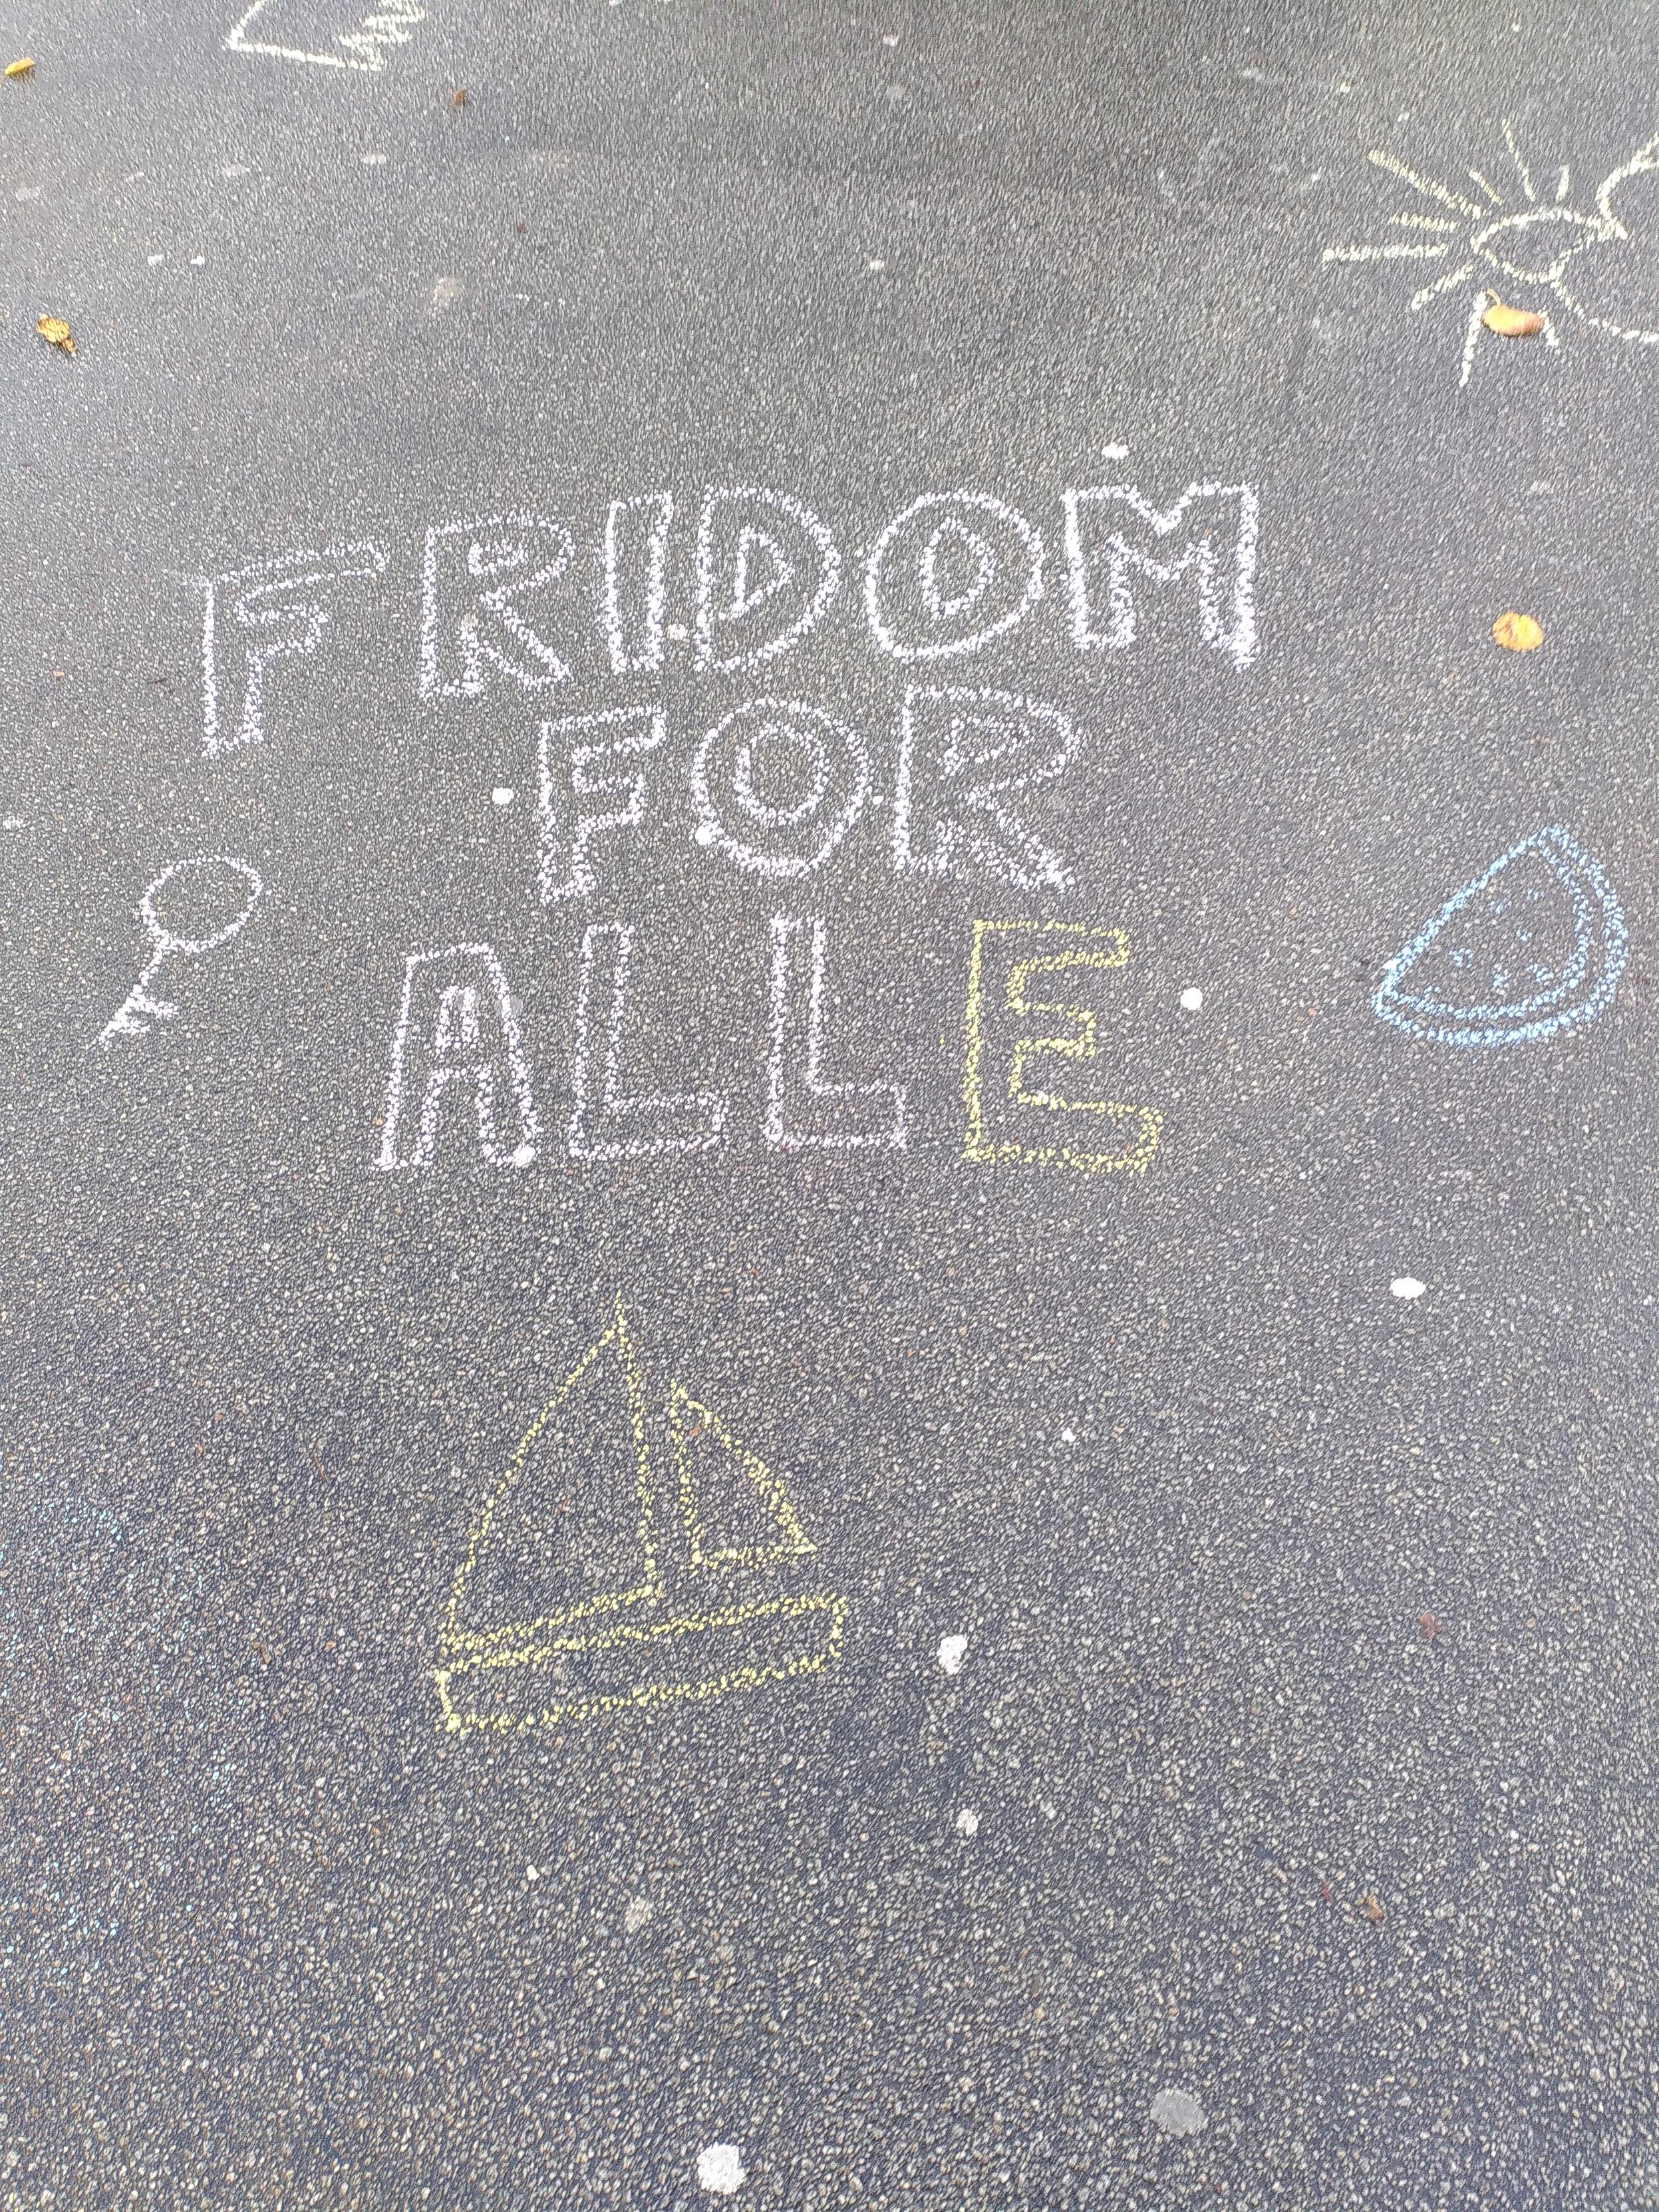 FRIDOM
FOR
ALLE